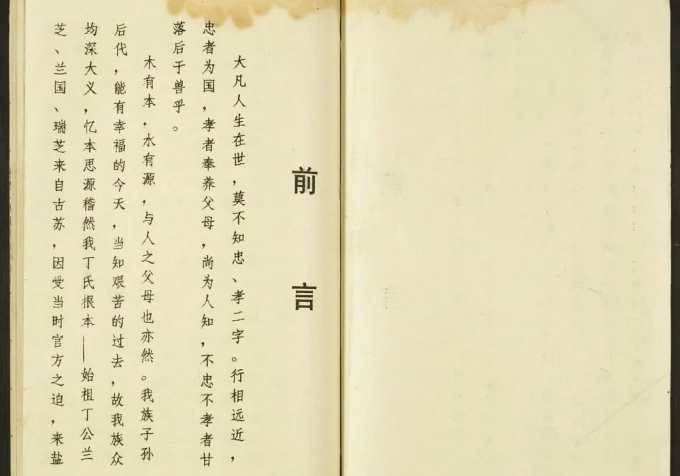 前言
大凡人生在世，莫不知忠、孝二字。行相远近，
忠者为国，孝者奉养父母，尚为人知，不忠不孝者甘
落后于兽乎。
木有本，水有源，与人之父母也亦然。我族子孙
后代，能有幸福的今天，当知艰苦的过去，故我族众
均深大义，忆本思源稽然我丁氏根本——始祖丁公兰
芝、兰国、瑞芝来自古苏，因受当时官方之迫，来盐